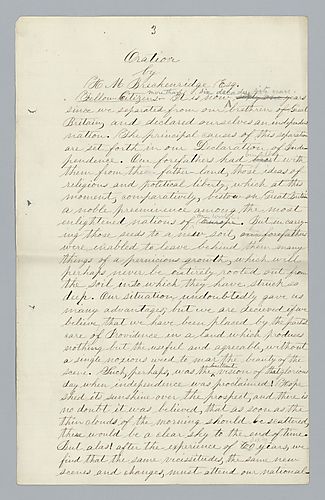 3
Oration
by
H. M. Brackenridge Esq.
Fellow Citizens - It is now years
since we separated from our brethren of Great
Britain, and declared ourselves an independent
nation. The principal causes of this separation
are set forth in our Declaration of Inde-
pendence. Our forefathers had with
them from their father land, those ideas of
religious and political liberty, which at this
moment, comparatively, bestow on Great Britain
a noble preeminence among the most
enlightened nations of Europe. But in carry-
ing those seeds to a new soil, our forefathers
were enabled to leave behind them many
things of a pernicious growth, which will
perhaps never be entirely rooted out from
the soil into which they have struck so
deep. Our situation, undoubtedly gave us
many advantages, but we are deceived if we
believe that we have been placed by the partial
care of Providence in a land which produces
nothing but the useful and agreeable, without
a single noxious weed to mar the beauty of the
scene. Such, perhaps, was the vision of that glorious
day when independence was proclaimed. Hope
shed it sunshine over the prospect, and there is
no doubt it was believed that as soon as the
thin clouds of the morning should be scattered,
there would be a clear sky to the end of time.
But alas! after the experience of 60 years, we
find that the same vicissitudes, the same new
scenes and changes, must attend our national